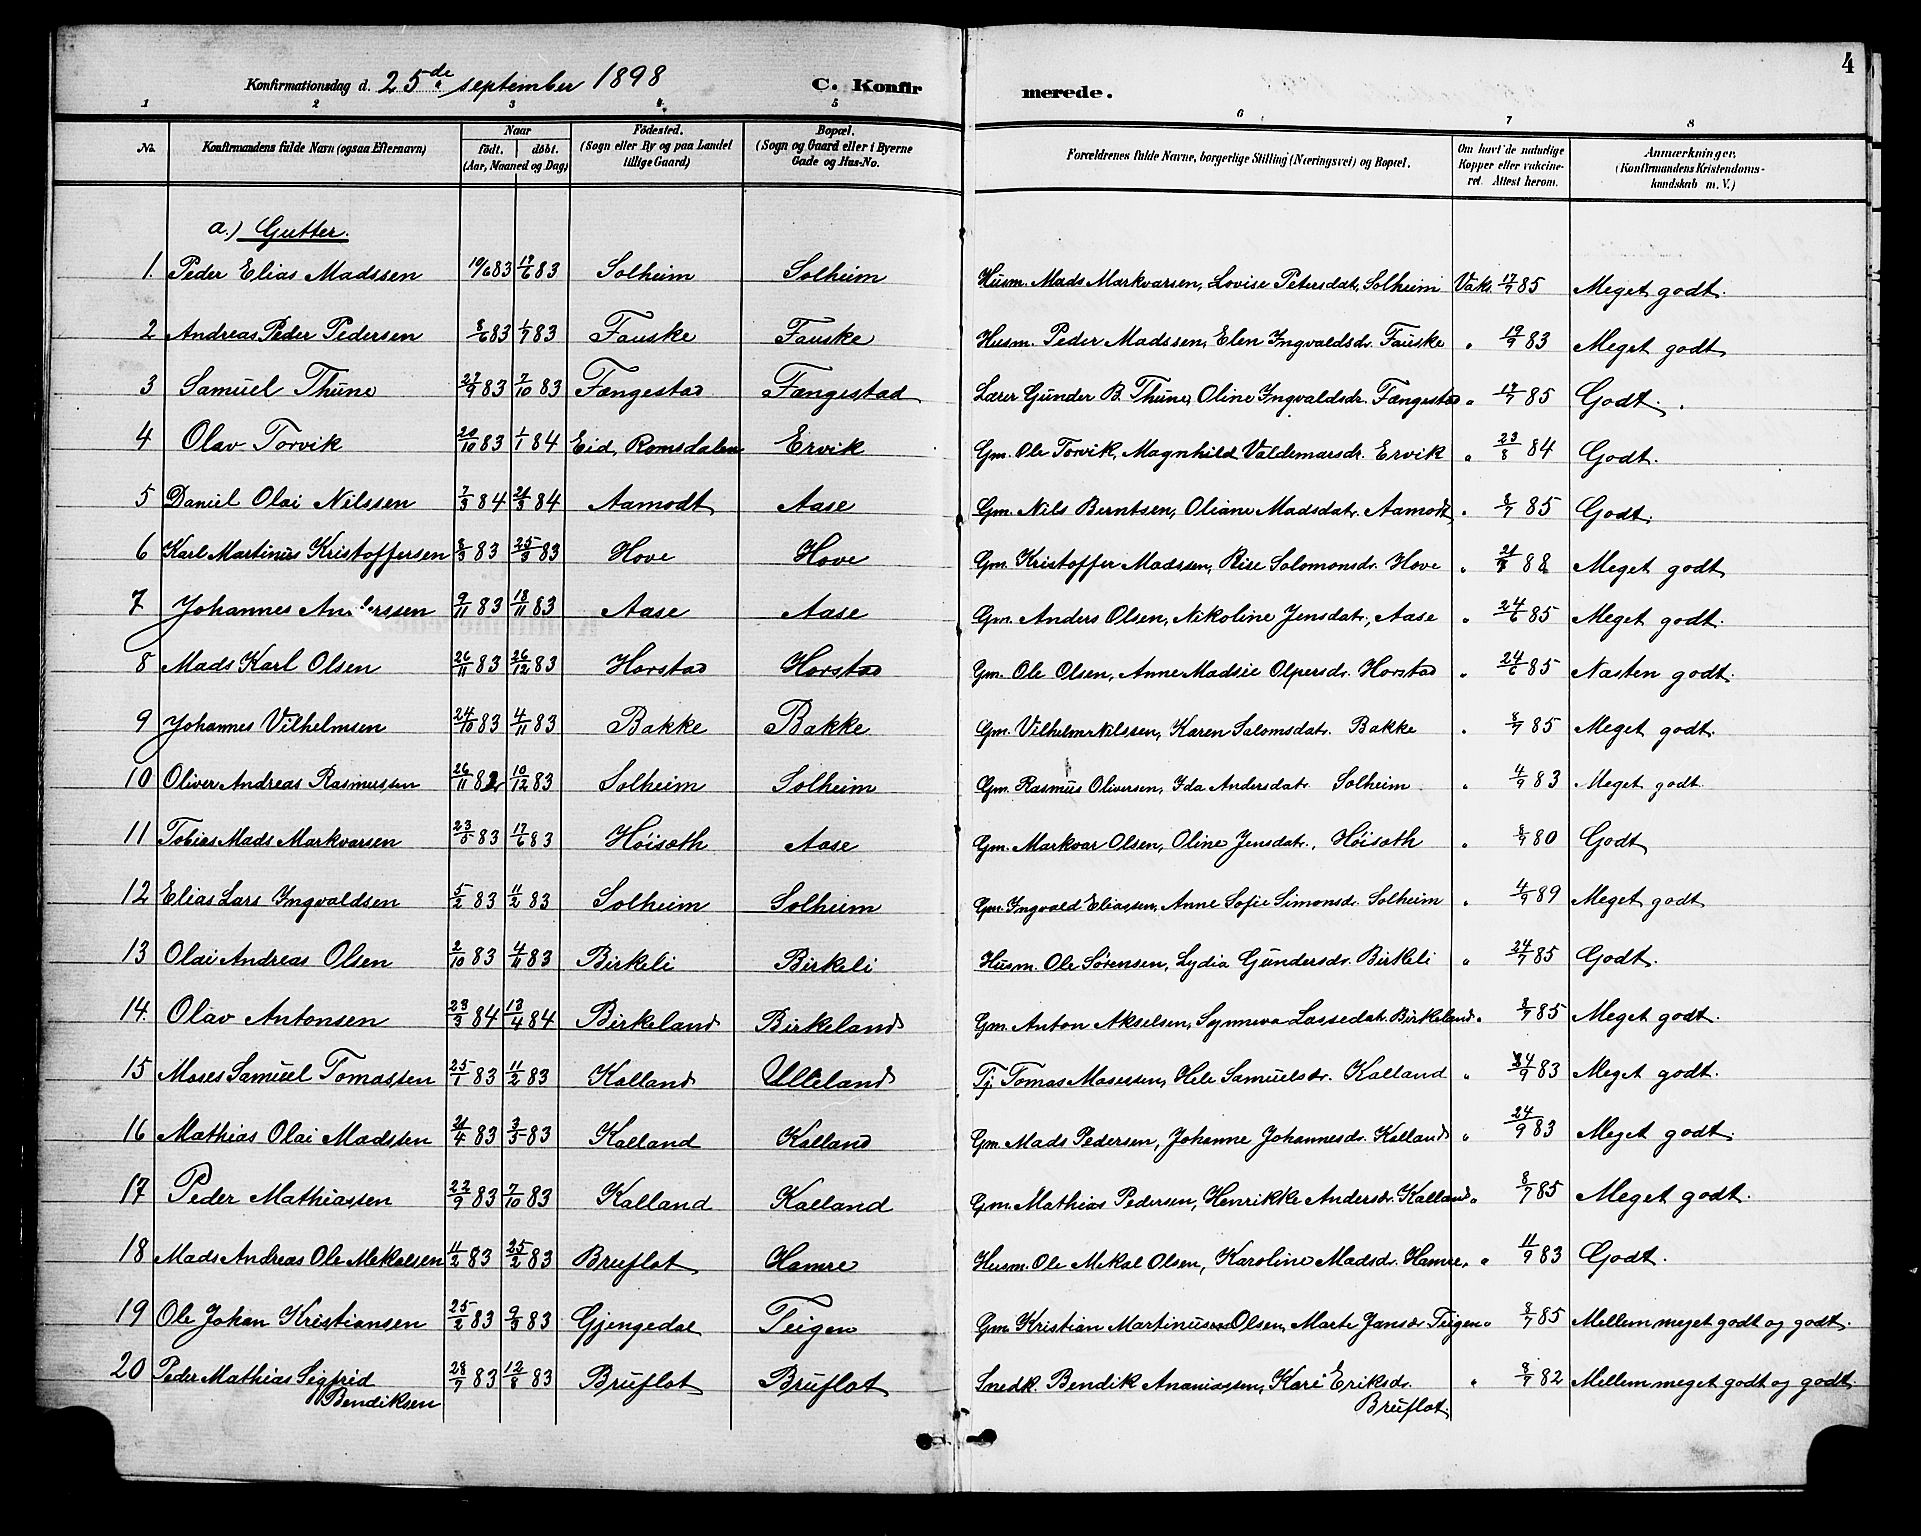 4
Konfirmationsdag d. 25de september 1898 C. Konfirmerede.
1 2 3 4 5 6 7 8
No. Konfirmandens fulde Navn (ogsaa Efternavn) Naar født. døbt. (Aar, Maaned og Dag) Fødested. (Sogn eller By og paa Landet tillige Gaard) Bopæl. (Sogn og Gaard eller i Byerne Gade og Hus-No. Forældrenes fulde Navne, borgerlige Stilling (Næringsvei) og Bopæl. Om havt de naturlige Kopper eller vakcineret. Attest herom. Anmærkninger. (Konfirmandens Kristendomskundskab m. V.)
a.) Gutter.
1. Peder Elias Madssen 10/6 83 17/6 83 Solheim Solheim Husm. Mads Markvarsen, Lovise Petersdat. Solheim Vaks. 17/7 85 Meget godt.
2 Andreas Peder Pedersen 8/6 83 1/7 83 Fauske Fauske Husm. Peder Madssen, Elen Ingvaldsdr. Fauske " 19/9 83 Meget godt
3 Samuel Thune 27/9 83 7/10 83 Fængestad Fængestad Lærer Gunder B. Thune, Oline Ingvaldsdr. Fængestad " 17/7 85 Godt.
4 Olav Torvik 20/10 83 1/1 84 Eid, Romsdalen Ervik Gm. Ole Torvik, Magnhild Valdemarsdr. Ervik " 23/8 84 Godt.
5 Daniel Olai Nilssen 7/3 84 21/3 84 Aamodt Aase Gm. Nils Berntsen, Oliane Madsdatr. Aamodt " 8/7 85 Godt.
6 Karl Martinus Kristoffersen 8/3 83 25/3 83 Hove Hove Gm. Kristoffer Madssen, Rise Salomonsdr. Hove " 88 Meget godt
7 Johannes Anderssen 9/11 83 18/11 83 Aase Aase Gm. Anders Olsen, Nikoline Jensdatr., Aase " 24/6 85 Meget godt.
8 Mads Karl Olsen 26/11 83 26/12 83 Horstad Horstad Gm. Ole Olsen, Anne Madsie Olpersdr. Horstad " 24/6 85 Næsten godt.
9 Johannes Vilhelmsen 24/10 83 4/11 83 Bakke Bakke Gm. Vilhelm Nilssen, Karen Salomsdatr. Bakke " 8/7 85 Meget godt.
10 Oliver Andreas Rasmussen 26/11 82 10/12 83 Solheim Solheim Gm. Rasmus Oliversen, Ida Andersdatr. Solheim " 4/9 83 Meget godt.
11 Tobias Mads Markvarsen 23/5 83 17/6 83 Høisæth Aase Gm. Markvar Olsen, Oline Jensdatr., Høisæth " 8/7 80 Godt
12 Elias Lars Ingvaldsen 5/2 83 11/2 83 Solheim Solheim Gm. Ingvald Eliassen, Anne Sofie Simonsdr. Solheim " 4/9 89 Meget godt
13 Olai Andreas Olsen 2/10 83 4/11 83 Birkeli Birkeli Husm. Ole Sørensen, Lydia Gundersdr. Birkeli " 24/7 85 Godt.
14. Olav Antonsen 23/3 84 13/4 84 Birkeland Birkeland Gm. Anton Akselsen, Synneva Lassedat. Birkeland " 8/7 85 Meget godt.
15 Moses Samuel Tomassen 25/1 83 11/2 83 Kalland Ulleland Tj. Tomas Mosessen, Hele Samuelsdr. Kalland " 24/9 83 Meget godt.
16 Mathias Olai Madssen 21/4 83 3/5 83 Kalland Kalland Gm. Mads Pedersen, Johanne Johannesdr. Kalland " 24/9 83 Meget godt.
17 Peder Mathiassen 22/9 83 7/10 83 Kalland Kalland Gm. Mathias Pedersen, Henrikke Andersdr. Kalland " 8/7 85 Meget godt.
18 Mads Andreas Ole Mekalsen 11/2 83 25/2 83 Bruflot Hamre Husm. Ole Mekal Olsen, Karoline Madsdr. Hamre, " 11/9 83 Godt.
19 Ole Johan Kristiansen 25/2 83 9/3 83 Gjengedal Teigen Gm. Kristian Martinus Olsen, Marte Jansdr Teigen " 8/7 85 Mellem meget godt og godt.
20 Peder Mathias Sigfrid 28/7 83 12/8 83 Bruflot Bruflot Snedk. Bendik Ananiassen, Kari Eriksdr. " 8/7 82 Mellem meget godt og godt.
Bendiksen Bruflot.